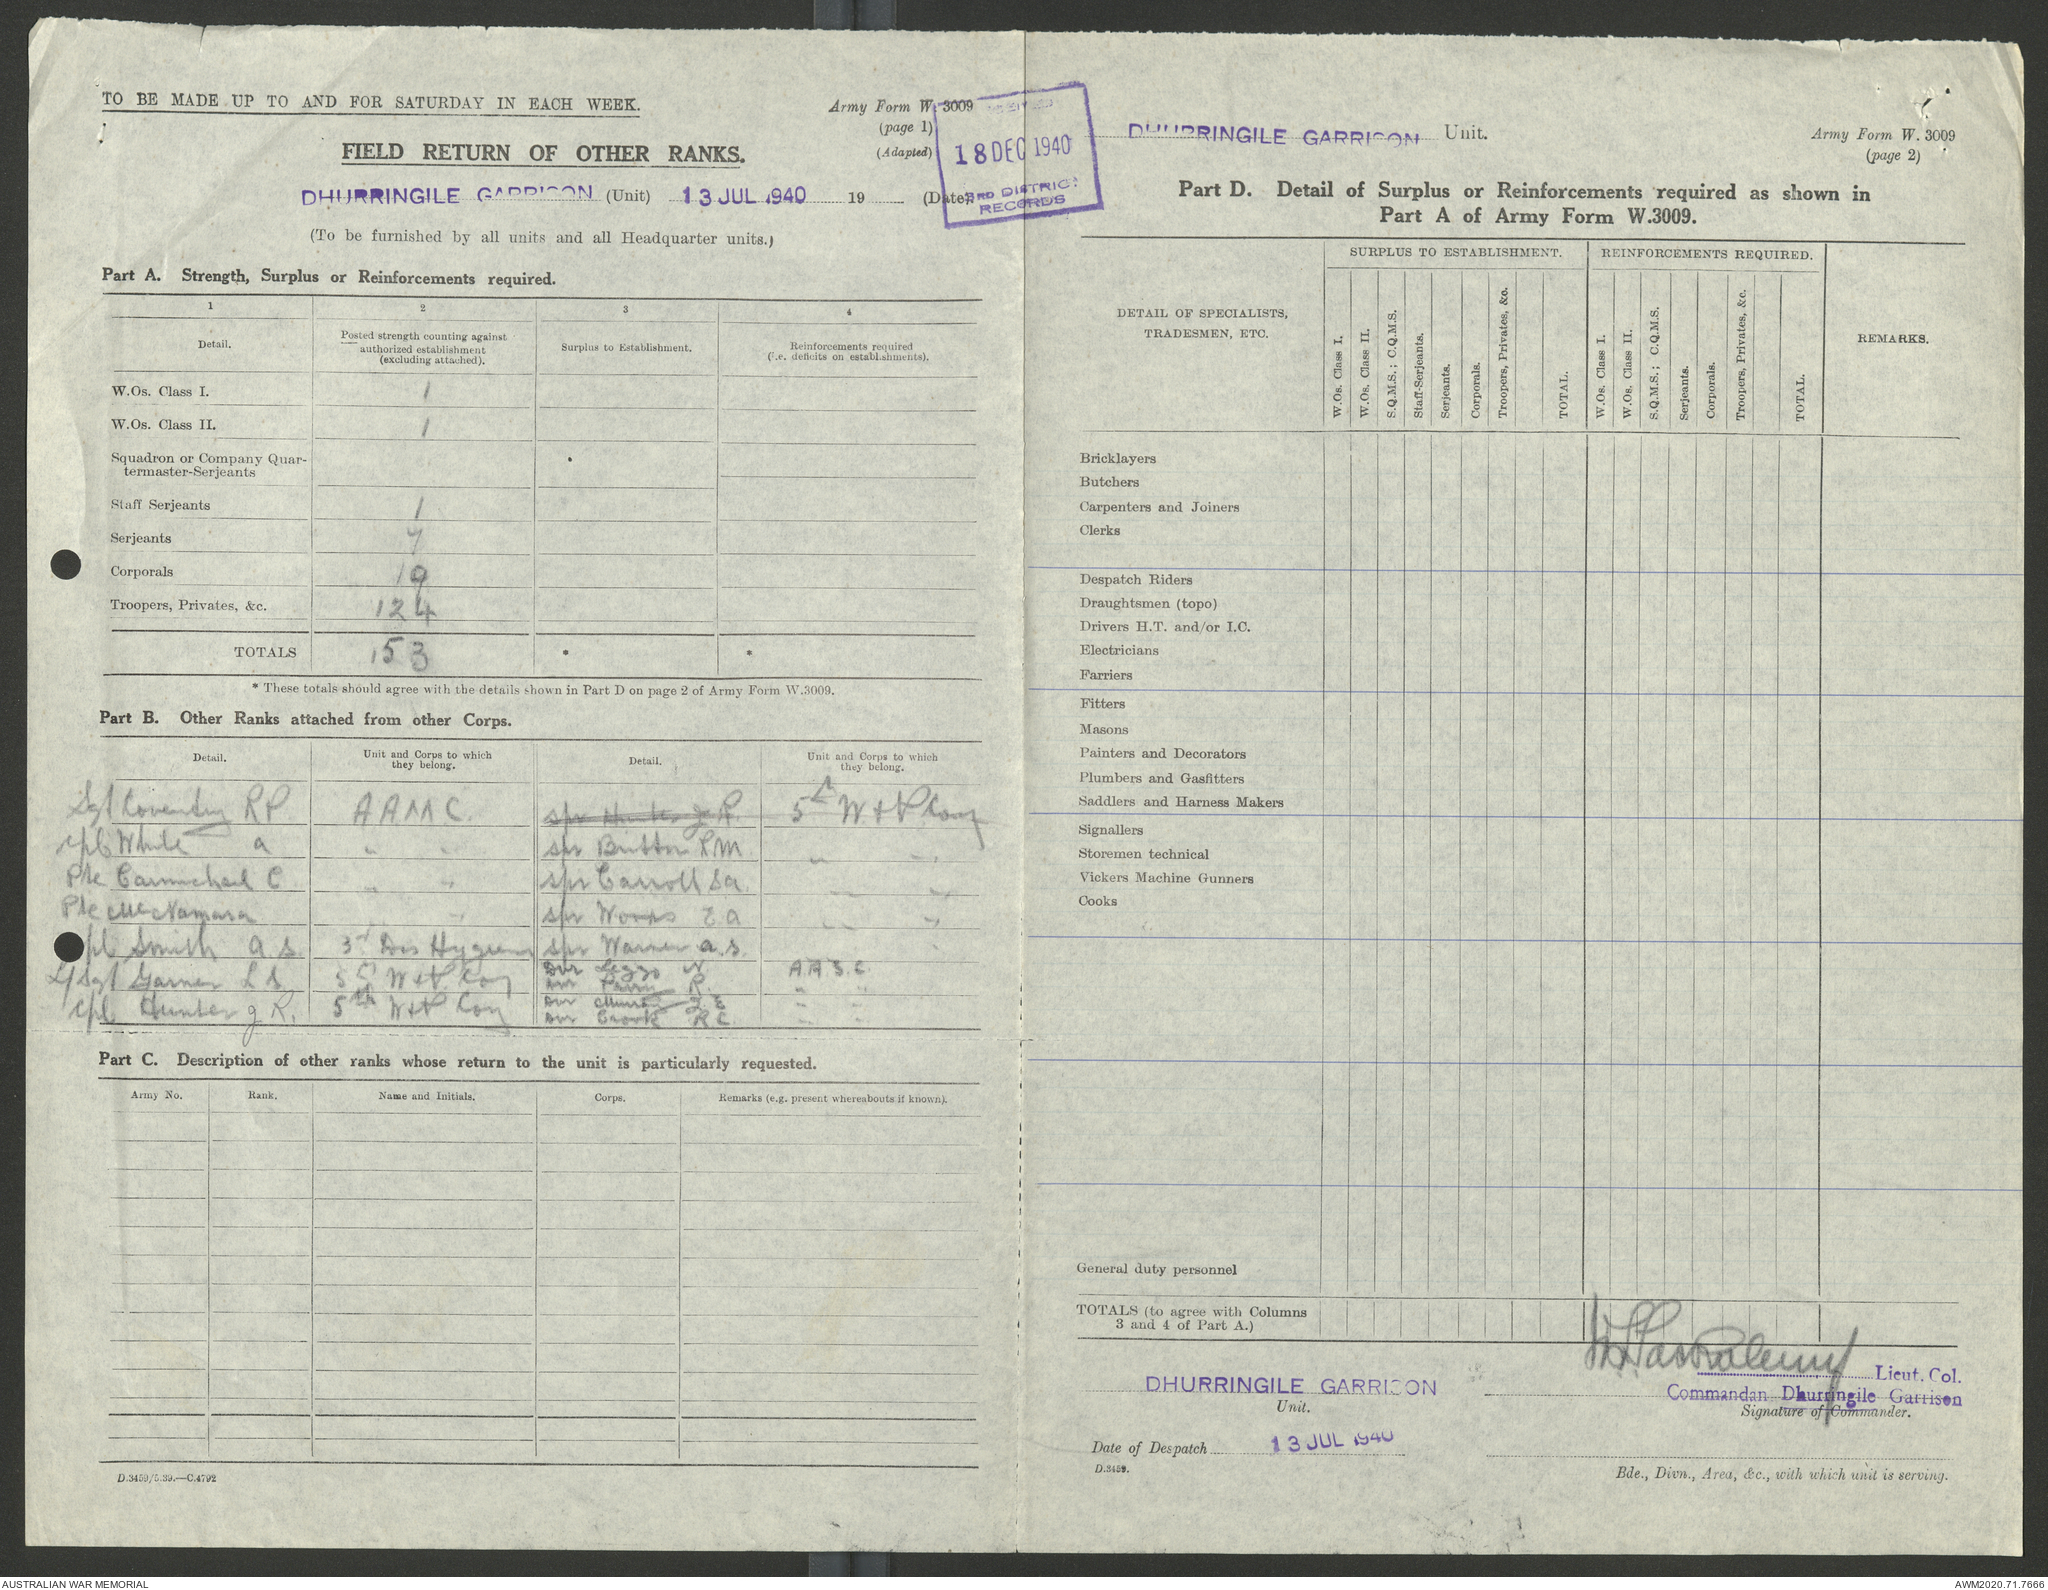 TO BE MADE UP TO AND FOR SATURDAY IN EACH WEEK.
Army Form W. 3009
(page 1)
(Adapted)
FIELD RETURN OF OTHER RANKS.
DHURRINGILE GARRISON (Unit) 13 JUL 1940 19 (Date)
18 DEC 1940
3RD DISTRICT
RECORDS
(To be furnished by all units and all Headquarter units.)
Part A. Strength, Surplus or Reinforcements required.
1 2 3 4
Detail.
Posted strength counting against
authorized establishment
(excluding attached).
Surplus to Establishment.
Reinforcements required
(i.e. deficits on establishments).
W.Os. Class I. 1
W.Os. Class II. 1
Squadron or Company Quar-
termaster-Serjeants
Staff Serjeants 1
Serjeants 7
Corporals 19
Troopers, Privates, &c. 124
TOTALS 153 * *
* These totals should agree with the details shown in Part D on page 2 of Army Form W.3009.
Part B. Other Ranks attached from other Corps.
Detail.
Unit and Corps to which
they belong.
Detail.
Unit and Corps to which
they belong.
Sgt Coventry R P A A M C. spr Hunter J R. 5th W & P Coy
Cpl White a " " spr Button R M " "
Pte Carmichael C " " spr Carroll S a. " "
Pte McNamara " " spr Woods E a " "
Cpl Smith a S. 3rd Dis Hygiene spr Warner a. S. "
L/Sgt Garner L S 5th W & P Coy Dvr Leggo N A.A.S.C.
Dvr R. " "
Cpl Hunter J R. 5th W & P Coy Dvr J E " "
Dvr Crook R C " "
Part C. Description of other ranks whose return to the unit is particularly requested.
Army No. Rank. Name and Initials. Corps. Remarks (e.g. present whereabouts if known).
D.3459/5.39.—C.4792
DHURRINGILE GARRISON Unit.
Army Form W. 3009
(page 2)
Part D. Detail of Surplus or Reinforcements required as shown in
Part A of Army Form W.3009.
DETAIL OF SPECIALISTS,
TRADESMEN, ETC.
SURPLUS TO ESTABLISHMENT.
REINFORCEMENTS REQUIRED.
REMARKS.
W.Os. Class I.
W.Os. Class II.
S.Q.M.S.; C.Q.M.S.
Staff-Serjeants.
Serjeants.
Corporals.
Troopers, Privates, &c.
TOTAL.
W.Os. Class I.
W.Os. Class II.
S.Q.M.S.; C.Q.M.S.
Serjeants.
Corporals.
Troopers, Privates, &c.
TOTAL.
Bricklayers
Butchers
Carpenters and Joiners
Clerks
Despatch Riders
Draughtsmen (topo)
Drivers H.T. and/or I.C.
Electricians
Farriers
Fitters
Masons
Painters and Decorators
Plumbers and Gasfitters
Saddlers and Harness Makers
Signallers
Storemen technical
Vickers Machine Gunners
Cooks
General duty personnel
TOTALS (to agree with Columns
3 and 4 of Part A.)
Lieut. Col.
DHURRINGILE GARRISON
Commandan Dhurringile Garrison
Unit.
Signature of Commander.
Date of Despatch 13 JUL 1940
D.3459.
Bde., Divn., Area, &c., with which unit is serving.
AUSTRALIAN WAR MEMORIAL
AWM2020.71.7666